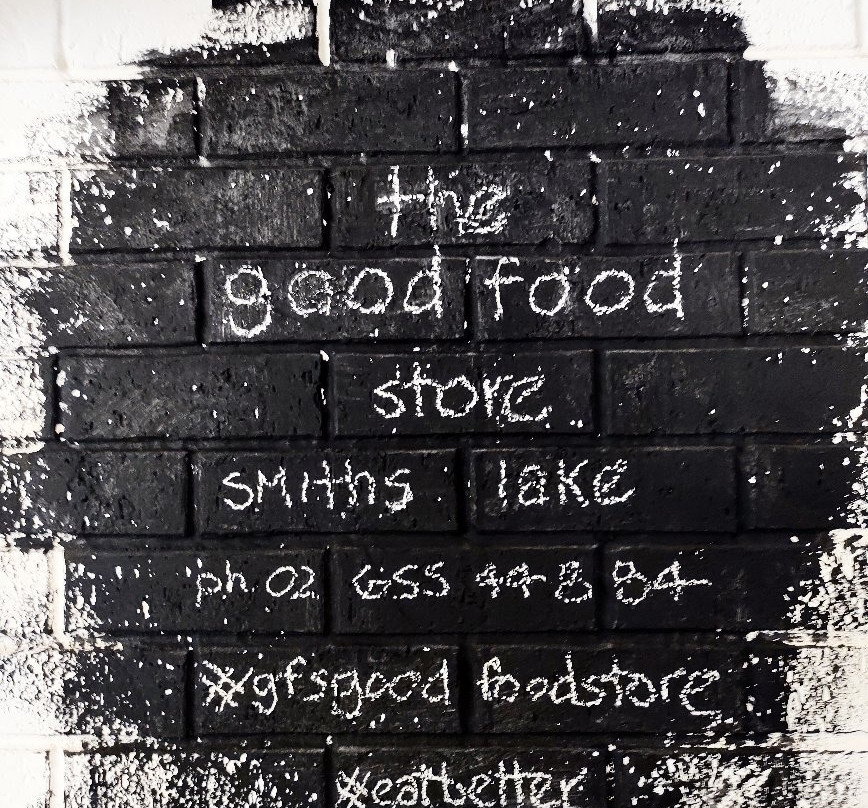 the
good food
store
smiths lake
ph 02 6554 4884
#gfsgood foodstore
#eatbetter